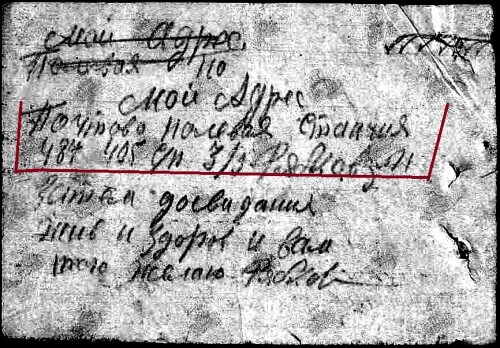 Мой Адрес
Полевая По
Мой Адрес
Почтово полевая Станция
487 405 сп 3/б
Затем досвидания
жив и здоров и вам
того желаю